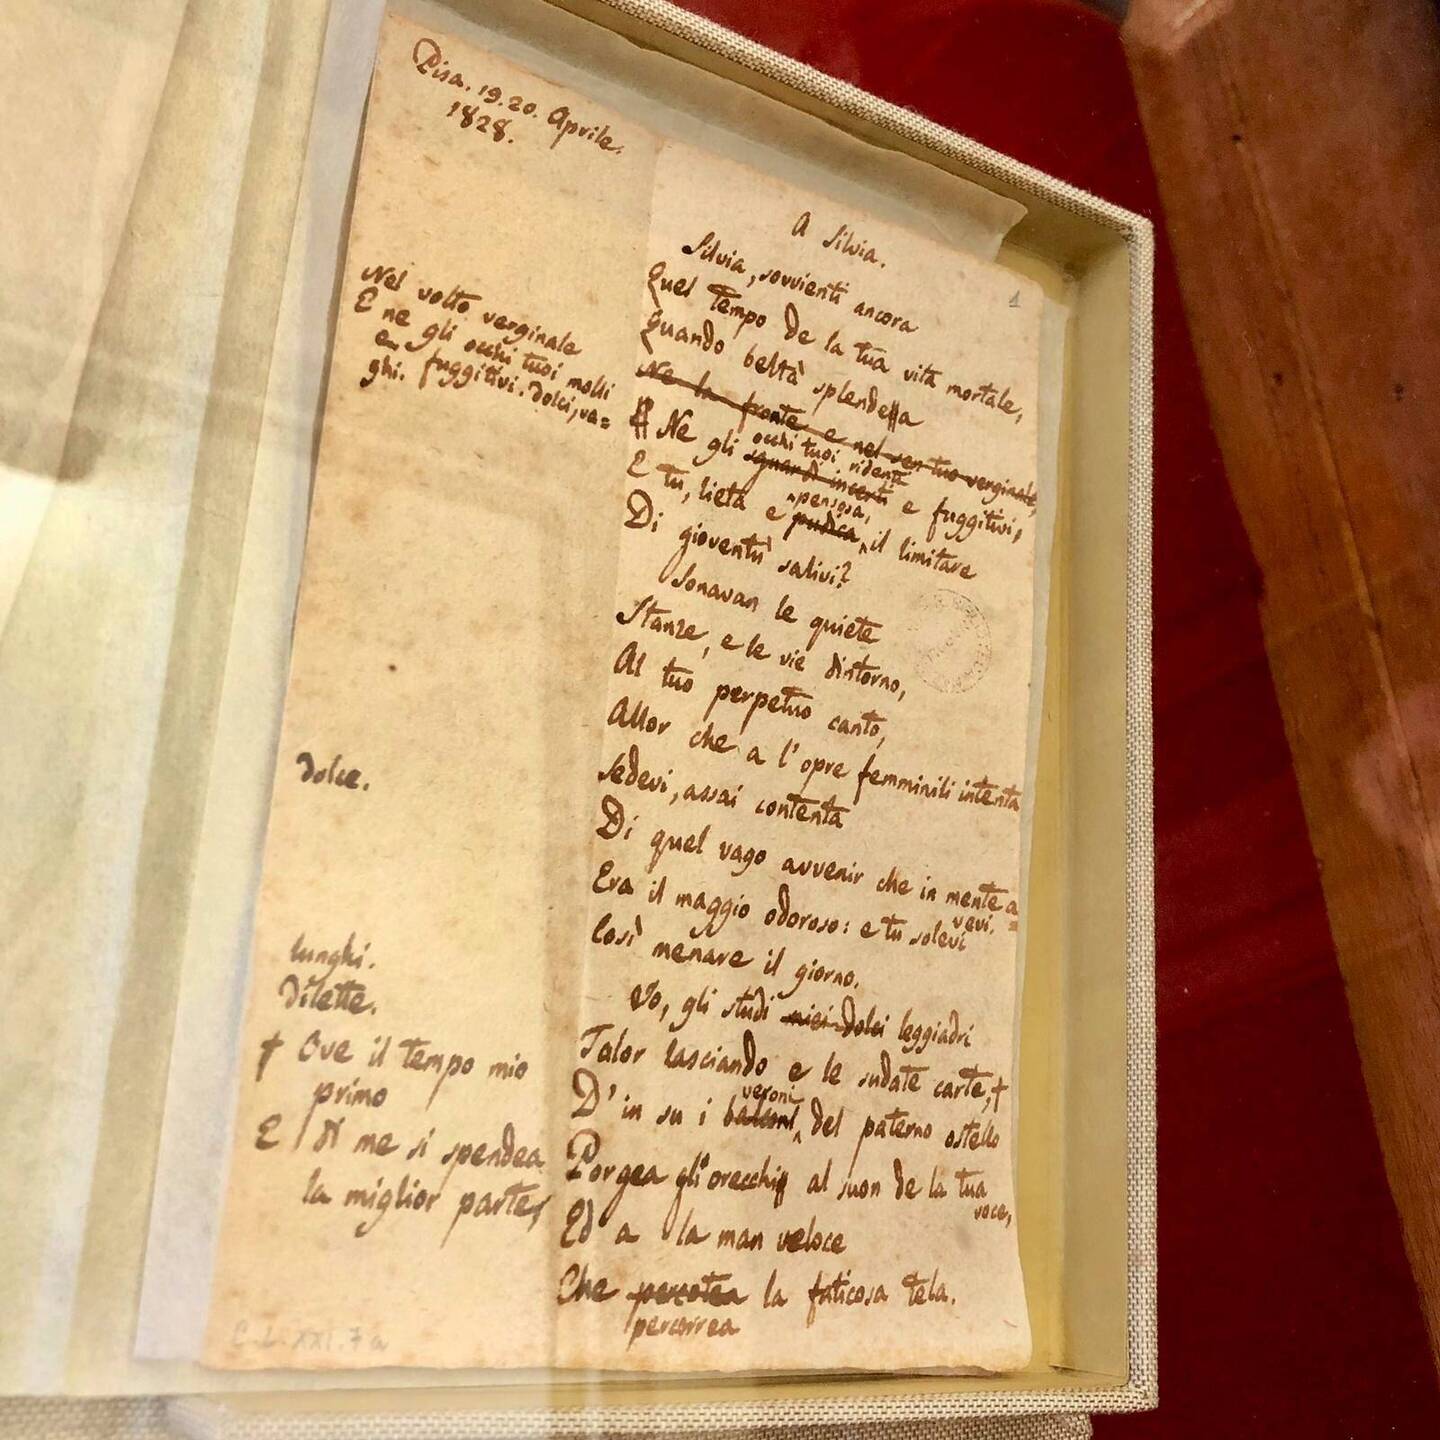 Pisa. 19. 20. Aprile.
1828.
A Silvia.
Silvia, sovvienti ancora
Quel tempo de la tua vita mortale,
Quando beltà splendea
Ne la fronte e nel sen tuo verginale,
Ne gli sguardi incerti e fuggitivi,
occhi tuoi ridenti
E tu, lieta e pudica, il limitare
pensosa,
Di gioventù salivi?
Sonavan le quiete
Stanze, e le vie dintorno,
Al tuo perpetuo canto,
Allor che a l'opre femminili intenta
Sedevi, assai contenta
Di quel vago avvenir che in mente a=
vevi.
Era il maggio odoroso: e tu solevi
Così menare il giorno.
Io, gli studi miei dolci leggiadri
Talor lasciando e le sudate carte,†
D'in su i balconi del paterno ostello
veroni
Porgea gli orecchi al suon de la tua
voce,
Ed a la man veloce
Che percotea la faticosa tela.
percorrea
Nel volto verginale
E ne gli occhi tuoi molli
e fuggitivi. dolci, va=
ghi.
dolce.
lunghi.
Dilette.
† Ove il tempo mio
primo
E di me si spendea
la miglior parte,
C. L. XXI. 7a
1